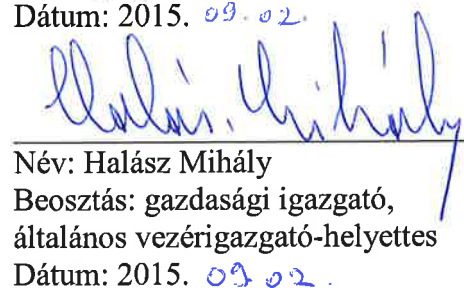 Dátum: 2015. 09. 02.
Halász Mihály
Név: Halász Mihály
Beosztás: gazdasági igazgató,
általános vezérigazgató-helyettes
Dátum: 2015. 09 02.